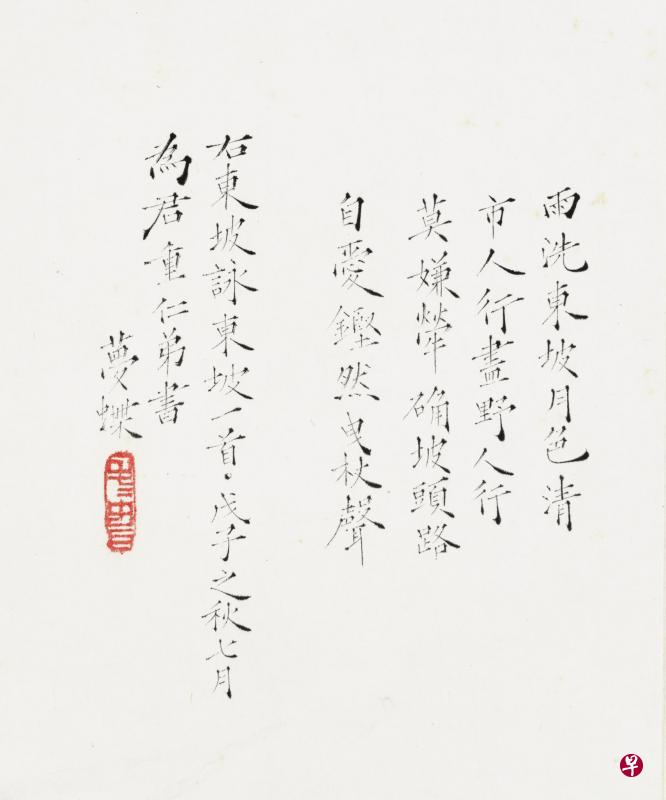 雨洗東坡月色清
市人行盡野人行
莫嫌犖确坡頭路
自愛鏗然曳杖聲
右東坡詠東坡一首。戊子之秋七月
為君重仁弟書
夢蝶
早